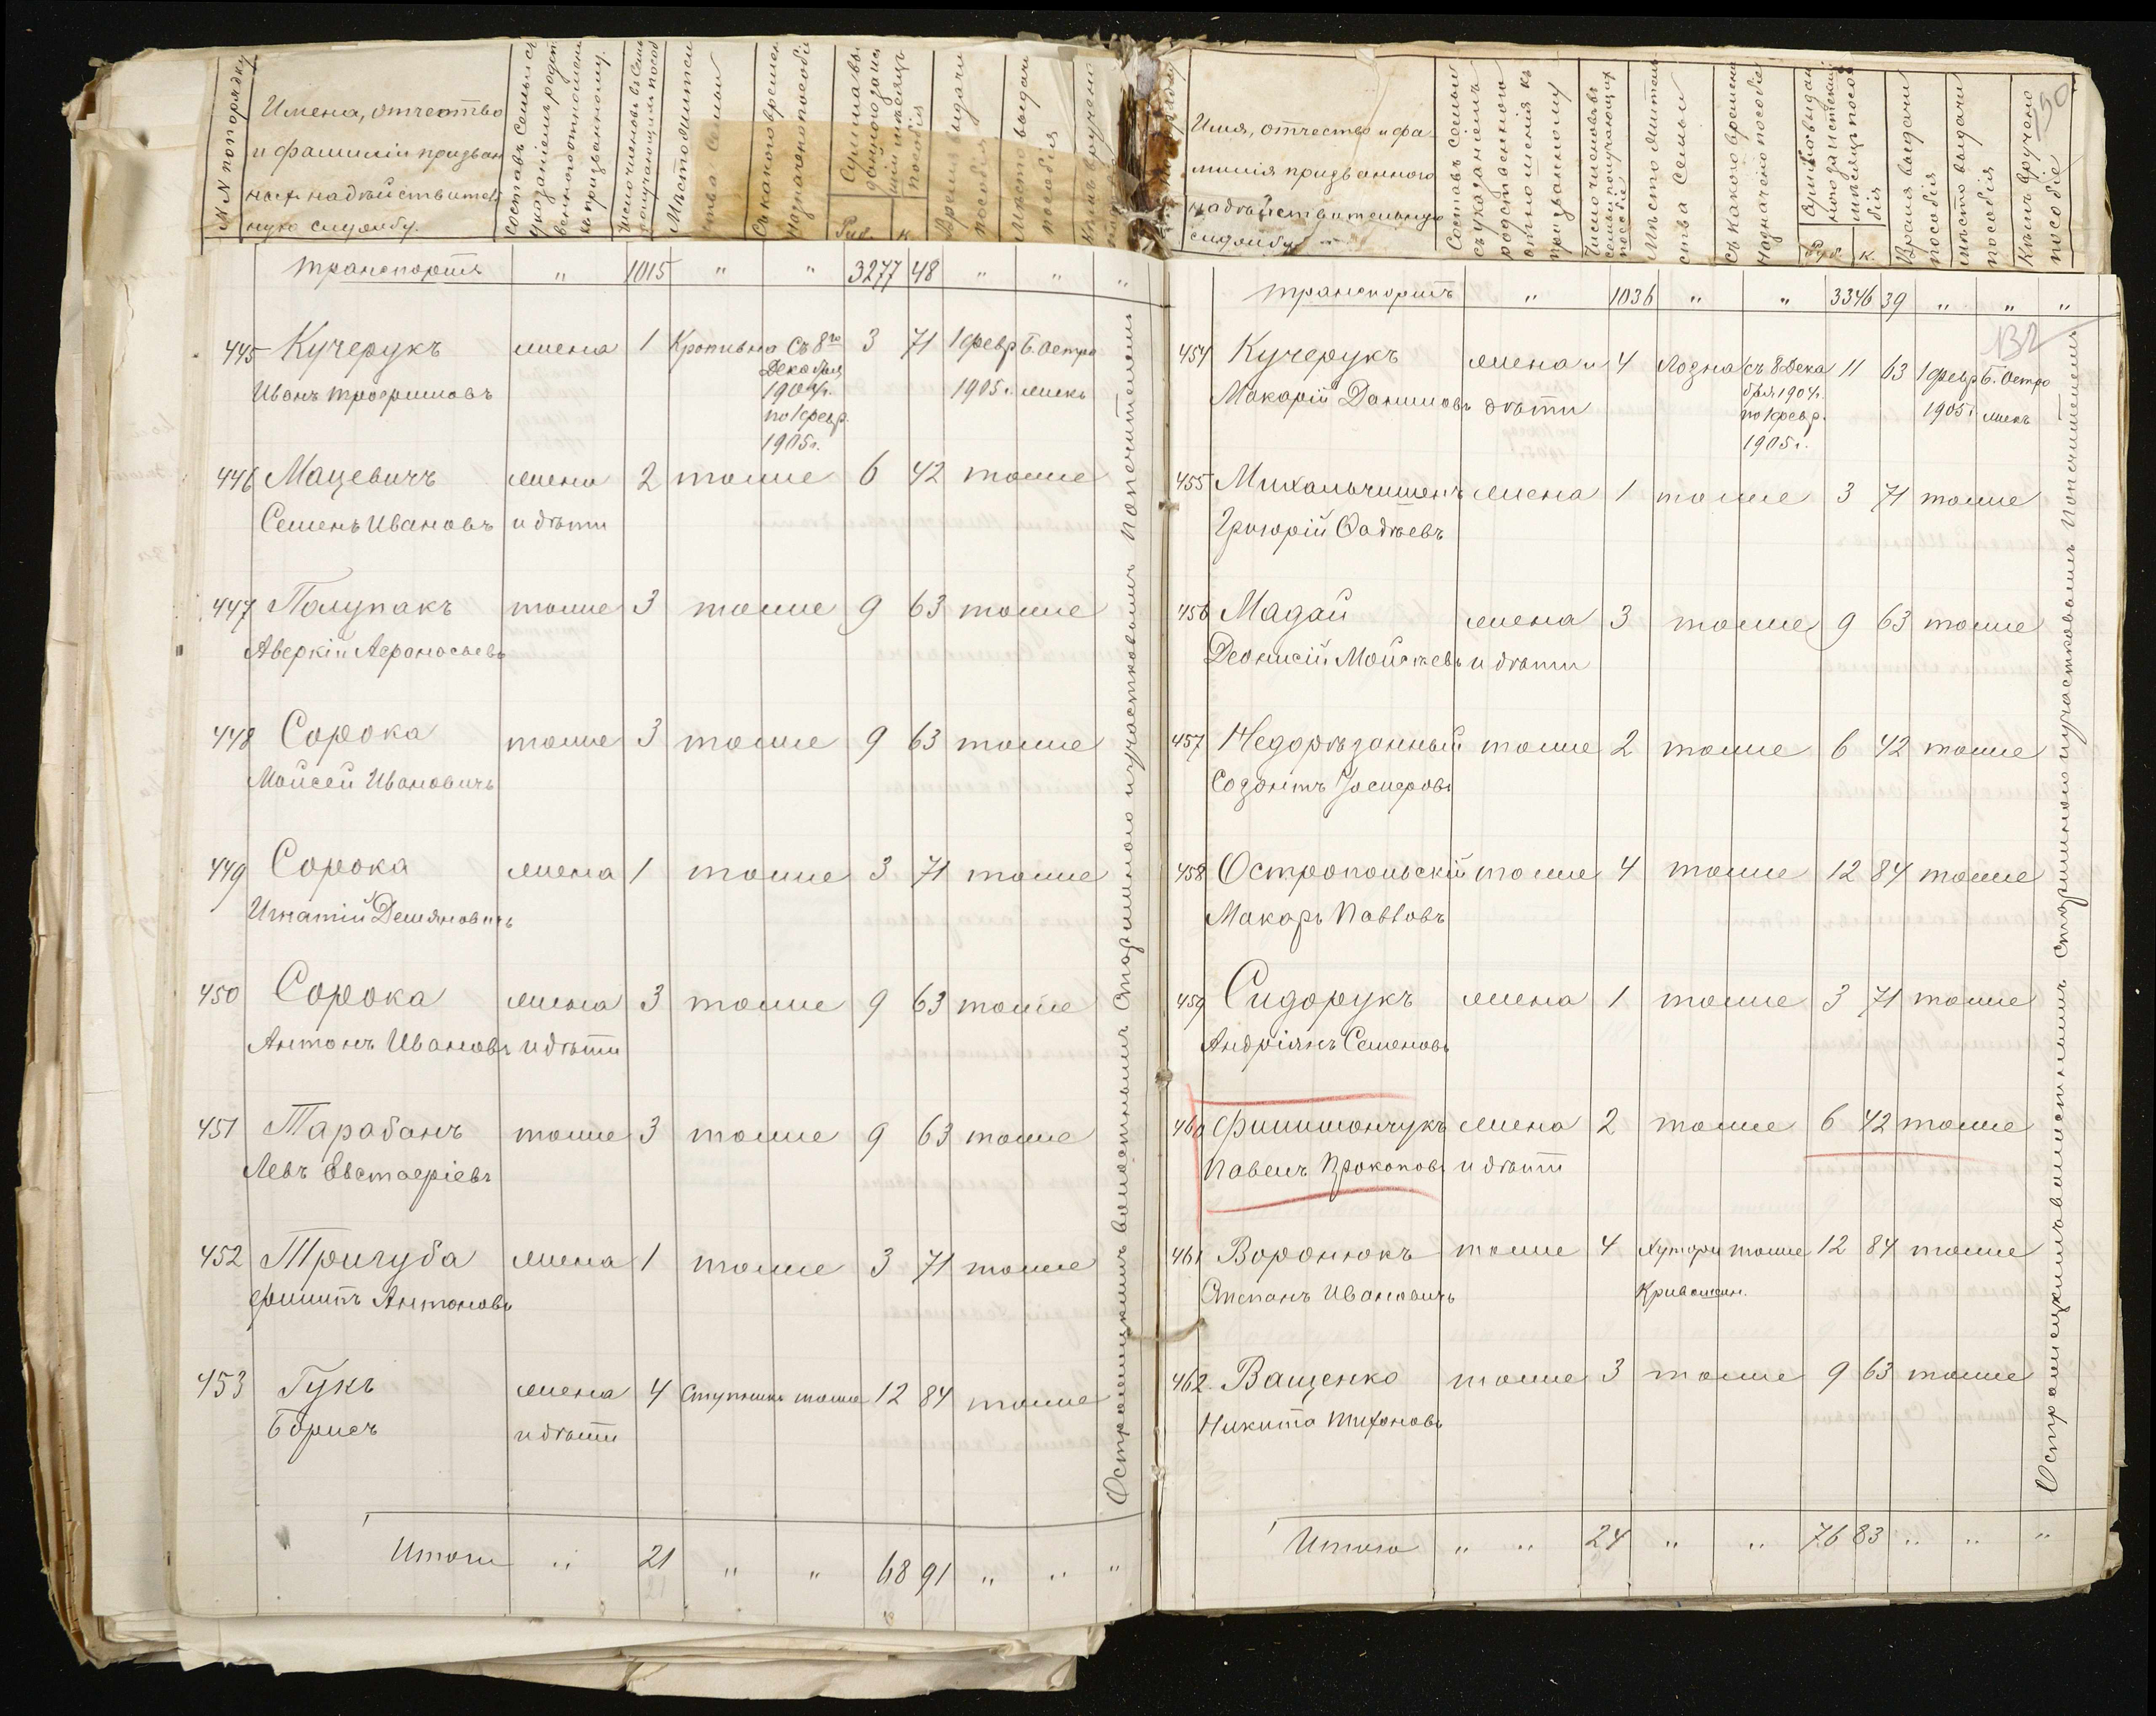 №№ по порядку
Имена, отчество
и фамилии призван
ных на действитель
ную службу.
Место жительства семьи
Руб. к.
Транспортъ " 1015 " " 3277 48 " " "
445 Кучерукъ жена 1 Кропивна Съ 8го 3 71 1 февр Б. Остро
Декабря
Иванъ Трофимовъ 1904г. 1905г. жекъ
по 1 февр.
1905г.
446 Мацевичъ жена 2 тоже 6 42 тоже
Семенъ Ивановъ и дѣти
447 Полупакъ тоже 3 тоже 9 63 тоже
Аверкій Афанасьевъ
448 Сорока тоже 3 тоже 9 63 тоже
Мойсей Ивановичъ
449 Сорока жена 1 тоже 3 71 тоже
Игнатій Демяновичъ
450 Сорока жена 3 тоже 9 63 тоже
Антонъ Ивановъ и дѣти
451 Тарабанъ тоже 3 тоже 9 63 тоже
Левъ Евстафіевъ
452 Тригуба жена 1 тоже 3 71 тоже
Филипъ Антоновъ
453 Гукъ жена 4 тоже 12 84 тоже
Борисъ и дѣти
Итого " 21 " " 68 91 " " "
волостнымъ Старшиною и участковымъ Попечителемъ
Имя, отчество и фа
милія призванного
на дѣйствительную
службу
Составъ семьи
съ указаніемъ
родственного
отношенія къ
призванному
Число членовъ
семьи получающихъ
пособіе
Мѣсто житель
ства семьи
Съ какого времени
назначено пособіе
Руб. к.
Время выдачи
пособія
Мѣсто выдачи
пособія
Кѣмъ вручено
пособіе
Транспортъ " 1036 " " 3346 39 " " "
132
454 Кучерукъ жена и 4 Лозна съ 8 Дека 11 63 1 февр Б. Остро
бря 1904г.
Макарій Даниловъ дѣти по 1 февр. 1905г жекъ
1905г.
455 Михальчишенъ жена 1 тоже 3 71 тоже
Григорій Фадѣевъ
456 Мадай жена 3 тоже 9 63 тоже
Деонисій Мойсѣевъ и дѣти
457 Недорѣзанный тоже 2 тоже 6 42 тоже
Созонтъ Іосифовъ
458 Остропольскій тоже 4 тоже 12 84 тоже
Макаръ Павловъ
459 Сидорукъ жена 1 тоже 3 71 тоже
Андріянъ Семеновъ
460 Филимончукъ жена 2 тоже 6 42 тоже
Павелъ Прокоповъ и дѣти
461 Воронюкъ тоже 4 Хутори тоже 12 84 тоже
Степанъ Ивановичъ
462. Ващенко тоже 3 тоже 9 63 тоже
Никита Тихоновъ
Итого " " 24 " " 76 83 " " "
волостнымъ старшиною и участковымъ Попечителемъ